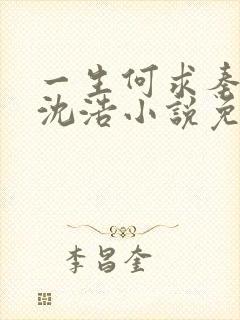 一生何求秦
沈浩小说免
李昌奎